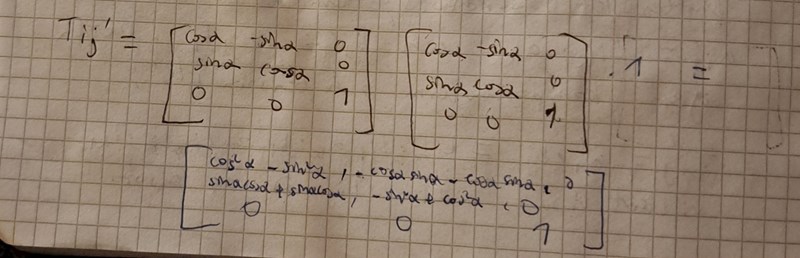 Tij' = [ cosα -sinα 0 ] [ cosα -sinα 0 ] · 1 = [ ]
sinα cosα 0 sinα cosα 0
0 0 1 0 0 1
cos²α - sin²α, - cosα sinα - cosα sinα, 0
sinα cosα + sinα cosα, - sin²α + cos²α, 0
0 0 1